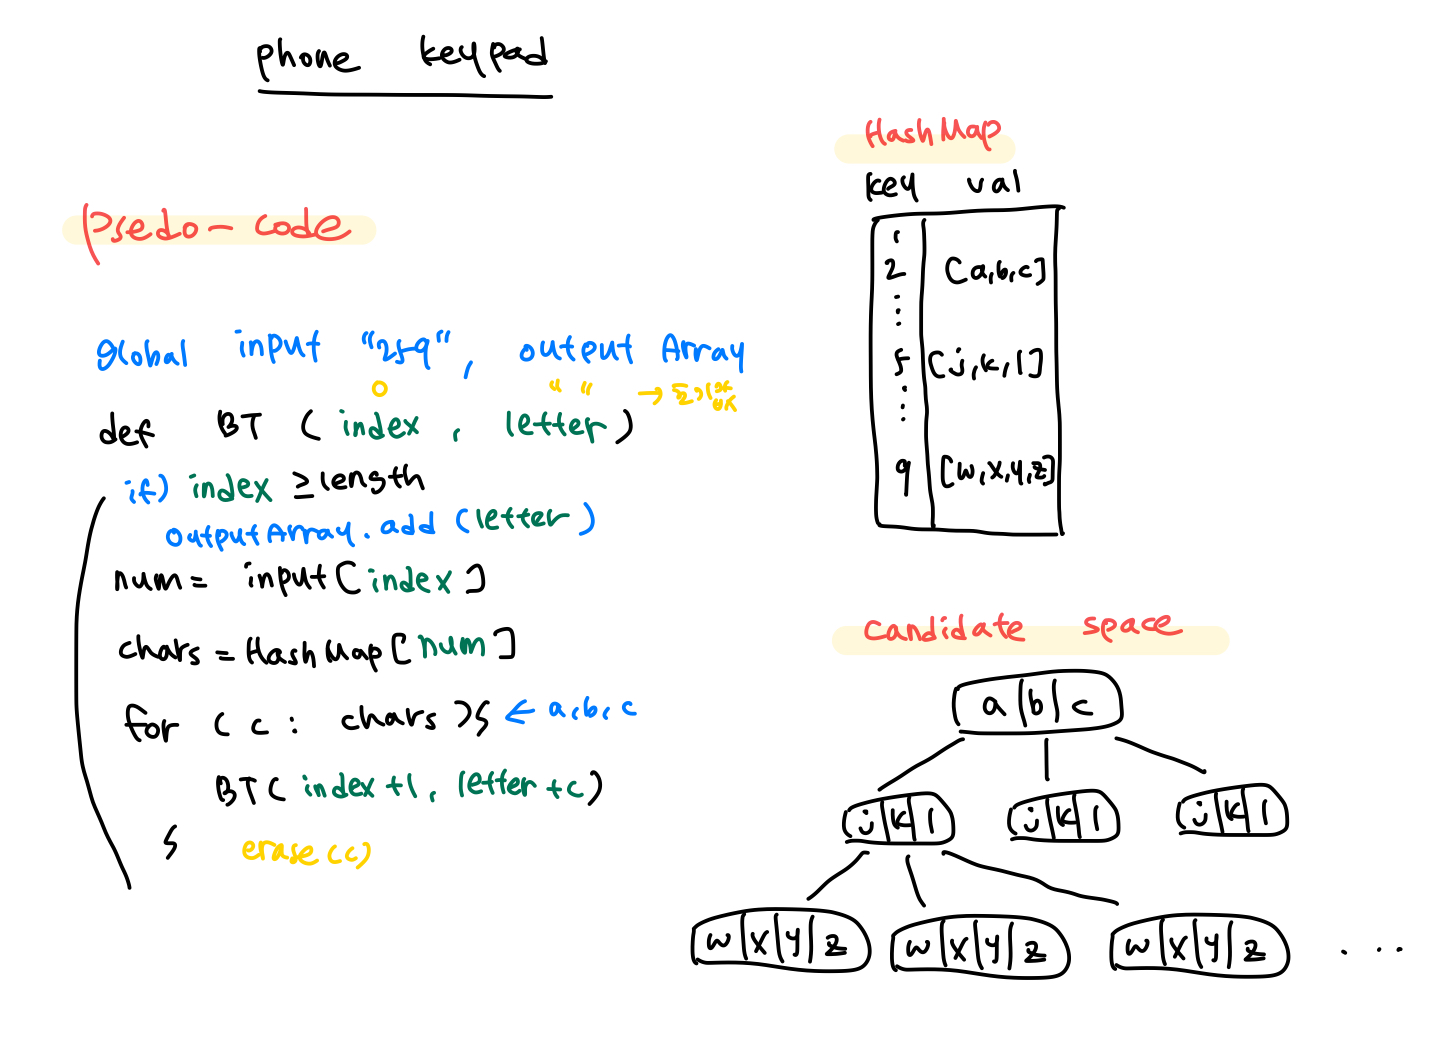 phone keypad
Psedo - code
global input "259", output Array
0 " " → 초기화
def BT ( index , letter )
if) index ≥ length
outputArray.add (letter)
num = input[index]
chars = HashMap[num]
for ( c : chars ) {
← a,b,c
BT( index+1, letter+c)
}
erase(c)
HashMap
key val
1
2 [a,b,c]
:
5 [j,k,l]
:
9 [w,x,y,z]
candidate space
a|b|c
j|k|l j|k|l j|k|l
w|x|y|z w|x|y|z w|x|y|z ...